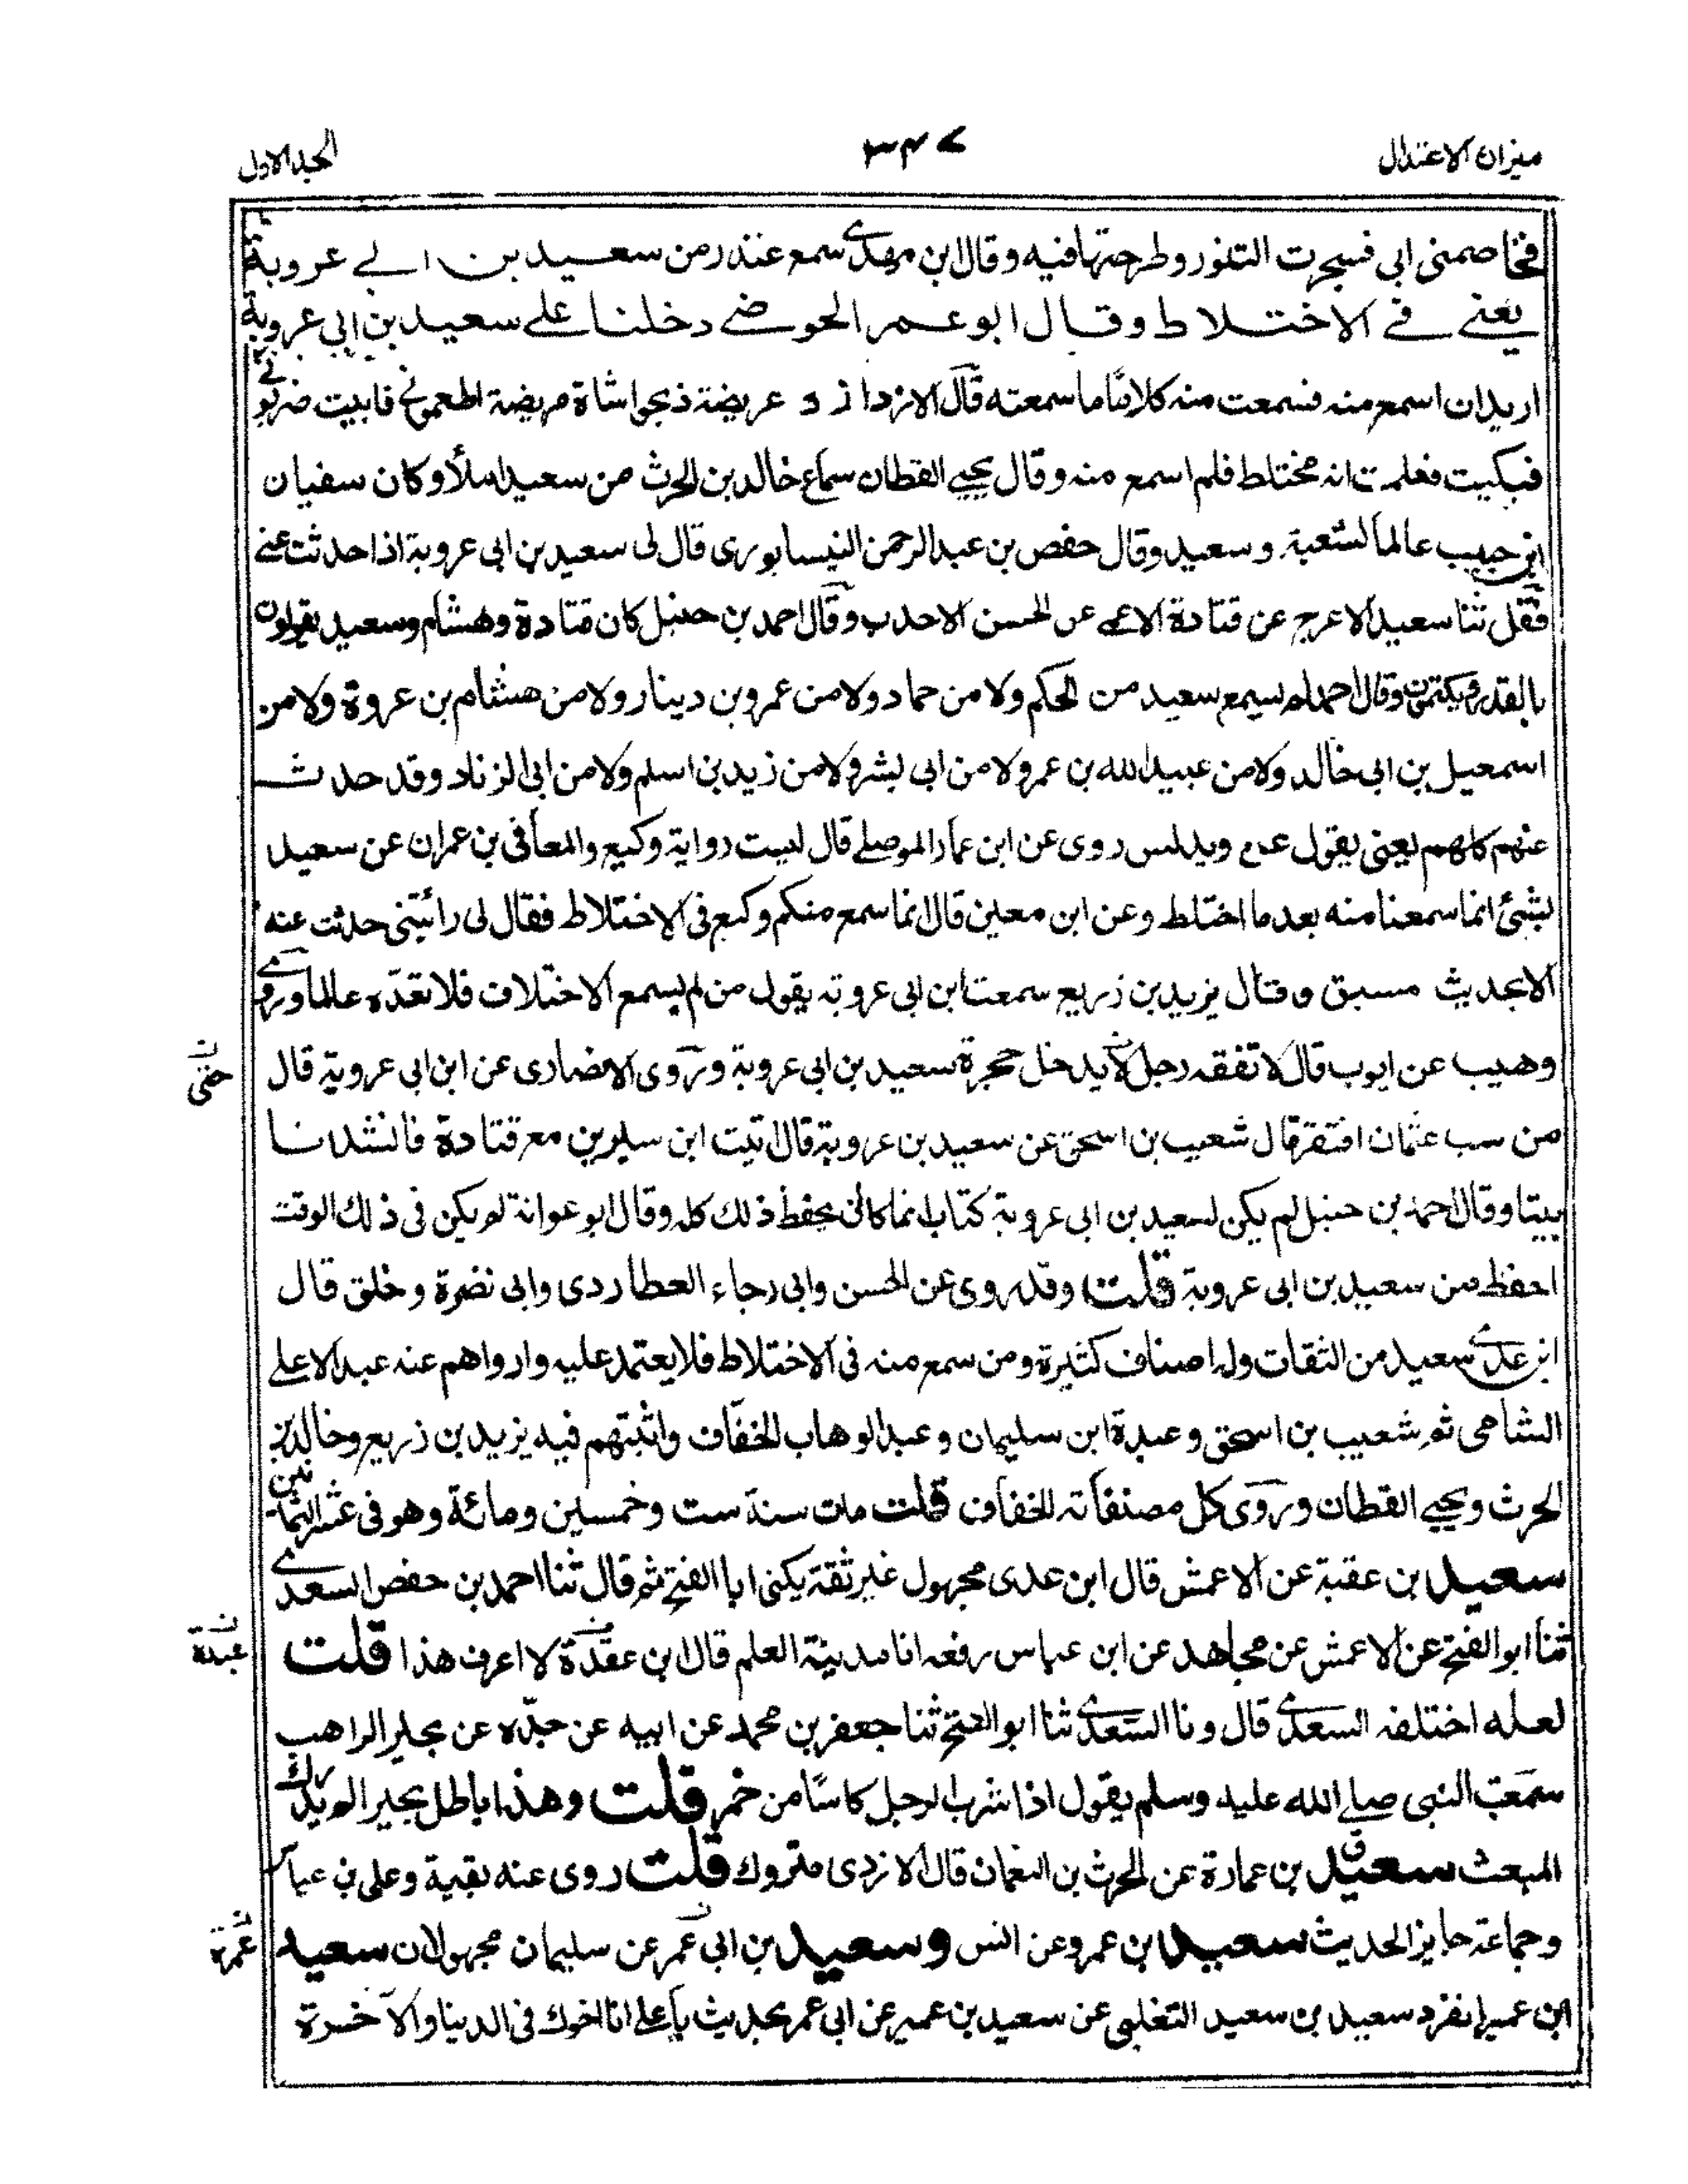 ميزان الاعتدال
٣٤٧
الجلد الاول
فخاصمنى ابى فسجرت التنور وطرحتها فيه وقال ابن مهدى سمع غندر من سعيد بن ابى عروبة
يعنى فى الاختلاط وقال ابو عمر الحوضى دخلنا على سعيد بن ابى عروبة
اريد ان اسمع منه فسمعت منه كلامًا ما سمعته قال الازد ازد عريضة ذبحوا شاة مريضة اطعمونى فابيت ضربونى
فبكيت فعلمت انه مختلط فلم اسمع منه وقال يحيى القطان سماع خالد بن الحرث من سعيد املأ وكان سفيان
ابن حبيب عالما لشعبة وسعيد وقال حفص بن عبدالرحمن النيسابورى قال لى سعيد بن ابى عروبة اذا حدثت عنى
فقل ثنا سعيد الاعرج عن قتادة الاعمى عن الحسن الاحدب وقال احمد بن حنبل كان قتادة وهشام وسعيد يقولون
بالقدر ويكتمون وقال احمد لم يسمع سعيد من الحكم ولا من حماد ولا من عمرو بن دينار ولا من هشام بن عروة ولا من
اسمعيل بن ابى خالد ولا من عبيدالله بن عمر ولا من ابى بشر ولا من زيد بن اسلم ولا من ابى الزناد وقد حدث
عنهم كلهم يعنى يقول عن ويدلس روى عن ابن عمار الموصلى قال ليست رواية وكيع والمعافى بن عمران عن سعيد
بشئ انما سمعنا منه بعد ما اختلط وعن ابن معين قال انما سمع منكم وكيع فى الاختلاط فقال لى رأيتنى حدثت عنه
الا بحديث مسبق وقال يزيد بن زريع سمعت ابن ابى عروبة يقول من لم يسمع الاختلاف فلا تعدّه عالما وروى
وهيب عن ايوب قال لا تفقه رجل لا يدخل حجرة سعيد بن ابى عروبة وروى الانصارى عن ابن ابى عروبة قال
حتى
من سب عثمان افتقر قال شعيب بن اسحق عن سعيد بن عروبة قال اتيت ابن سيرين مع قتادة فانشدنا
بيتا وقال احمد بن حنبل لم يكن لسعيد بن ابى عروبة كتاب انما كان يحفظ ذلك كله وقال ابو عوانة لم يكن فى ذلك الوقت
احفظ من سعيد بن ابى عروبة قلت وقد روى عن الحسن وابى رجاء العطاردى وابى نضرة وخلق قال
ابن عدى سعيد من الثقات وله اصناف كثيرة ومن سمع منه فى الاختلاط فلا يعتمد عليه وارواهم عنه عبدالاعلى
الشامى ثم شعيب بن اسحق وعبدة ابن سليمان وعبدالوهاب الخفّاف واثبتهم فيه يزيد بن زريع وخالد بن
الحرث ويحيى القطان وروى كل مصنفاته للخفاف قلت مات سنة ست وخمسين ومائة وهو فى عشر الثمانين
سعيد بن عقبة عن الاعمش قال ابن عدى مجهول غير ثقة يكنى ابا الفتح ثم قال ثنا احمد بن حفص السعدى
ثنا ابو الفتح عن الاعمش عن مجاهد عن ابن عباس رفعه انا مدينة العلم قال ابن عقدة لا اعرف هذا قلت
عبدة
لعله اختلقه السعدى قال ونا السّعدى ثنا ابو الفتح ثنا جعفر بن محمد عن ابيه عن جدّه عن بحير الراهب
سمعت النبى صلى الله عليه وسلم يقول اذا شرب الرجل كاسًا من خمر قلت وهذا باطل بحير لم يدرك
المبعث سعيد بن عمارة عن الحرث بن النعمان قال الازدى متروك قلت روى عنه بقية وعلى بن عياش
وجماعة جايز الحديث سعيد بن عمرو عن انس وسعيد بن ابى عمر عن سليمان مجهولان سعيد
عمرة
ابن عمير انفرد سعيد بن سعيد التغلبى عن سعيد بن عمير عن ابى عمر بحديث يا على انا اخوك فى الدنيا والآخرة